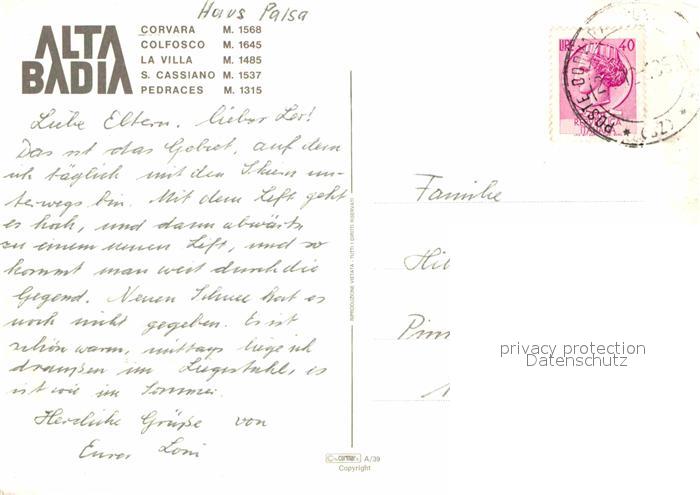 Haus Palsa
ALTA
BADIA
CORVARA M. 1568
COLFOSCO M. 1645
LA VILLA M. 1485
S. CASSIANO M. 1537
PEDRACES M. 1315
LIRE 40
POSTE
Liebe Eltern, lieber Leo!
Das ist das Gebiet, auf dem
ich täglich mit den Skiern un-
terwegs bin. Mit dem Lift geht
es hoch, und dann abwärts
zu einem neuen Lift, und so
kommt man weit durch die
Gegend. Neuen Schnee hat es
noch nicht gegeben. Es ist
schön warm, mittags liege ich
draußen im Liegestuhl, es
ist wie im Sommer.
Herzliche Grüße von
Eurer Loni
Familie
Hil
RIPRODUZIONE VIETATA - TUTTI I DIRITTI RISERVATI
privacy protection
Datenschutz
A/39
Copyright